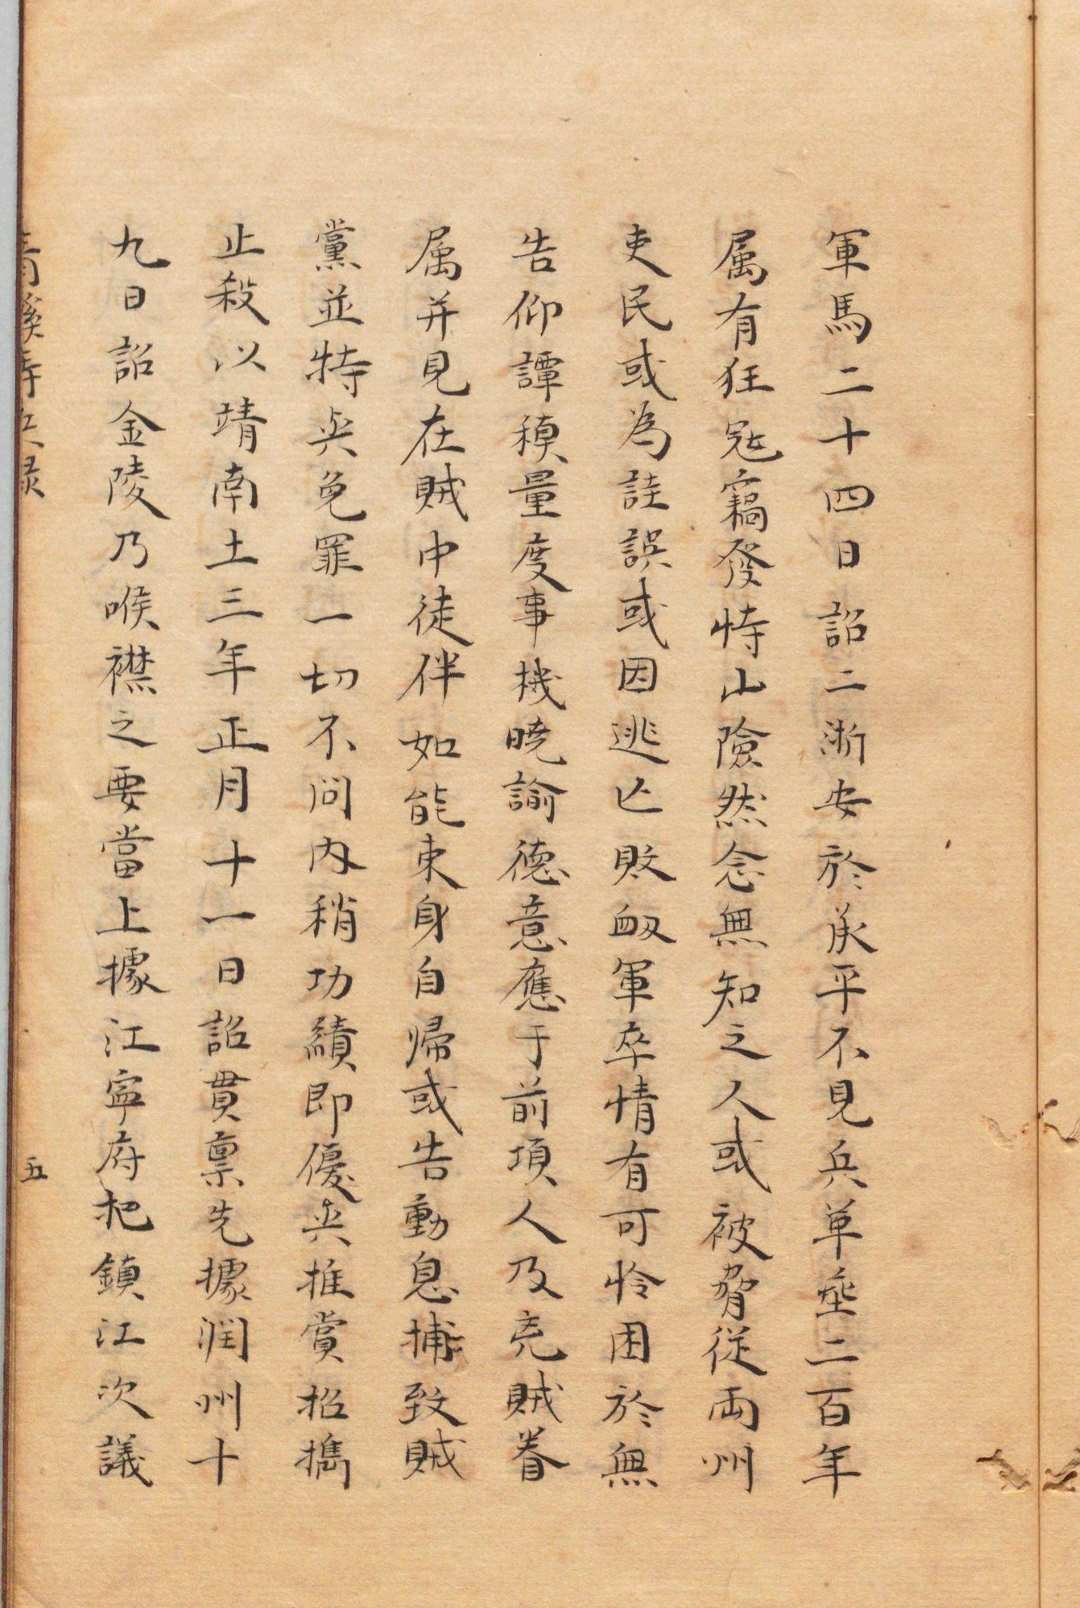 軍馬二十四日詔二浙安於承平不見兵革垂二百年
属有狂冦竊發恃山險然念無知之人或被脅従両州
吏民或為詿誤或因逃亡敗衂軍卒情有可怜困於無
告仰譚稹量度事機暁諭德意應于前項人及免賊眷
属并見在賊中徒伴如能束身自帰或告動息捕致賊
黨並特与免罪一切不問内稍功績即優与推賞招擕
止殺以靖南土三年正月十一日詔貫稟先據潤州十
九日詔金陵乃喉襟之要當上據江寧府把鎮江次議
青溪寺兵録
五